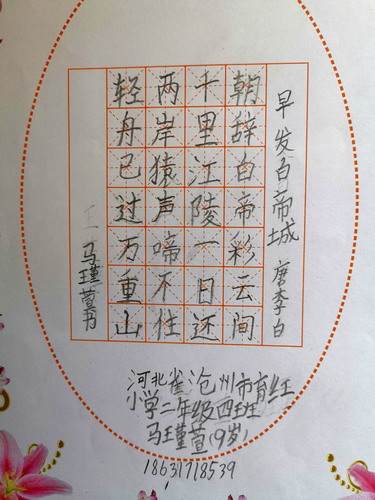 早发白帝城 唐李白
朝辞白帝彩云间
千里江陵一日还
两岸猿声啼不住
轻舟已过万重山
马瑾萱书
河北雀沧州市育红
小学二年级四班
马瑾萱(9岁)
18631718539